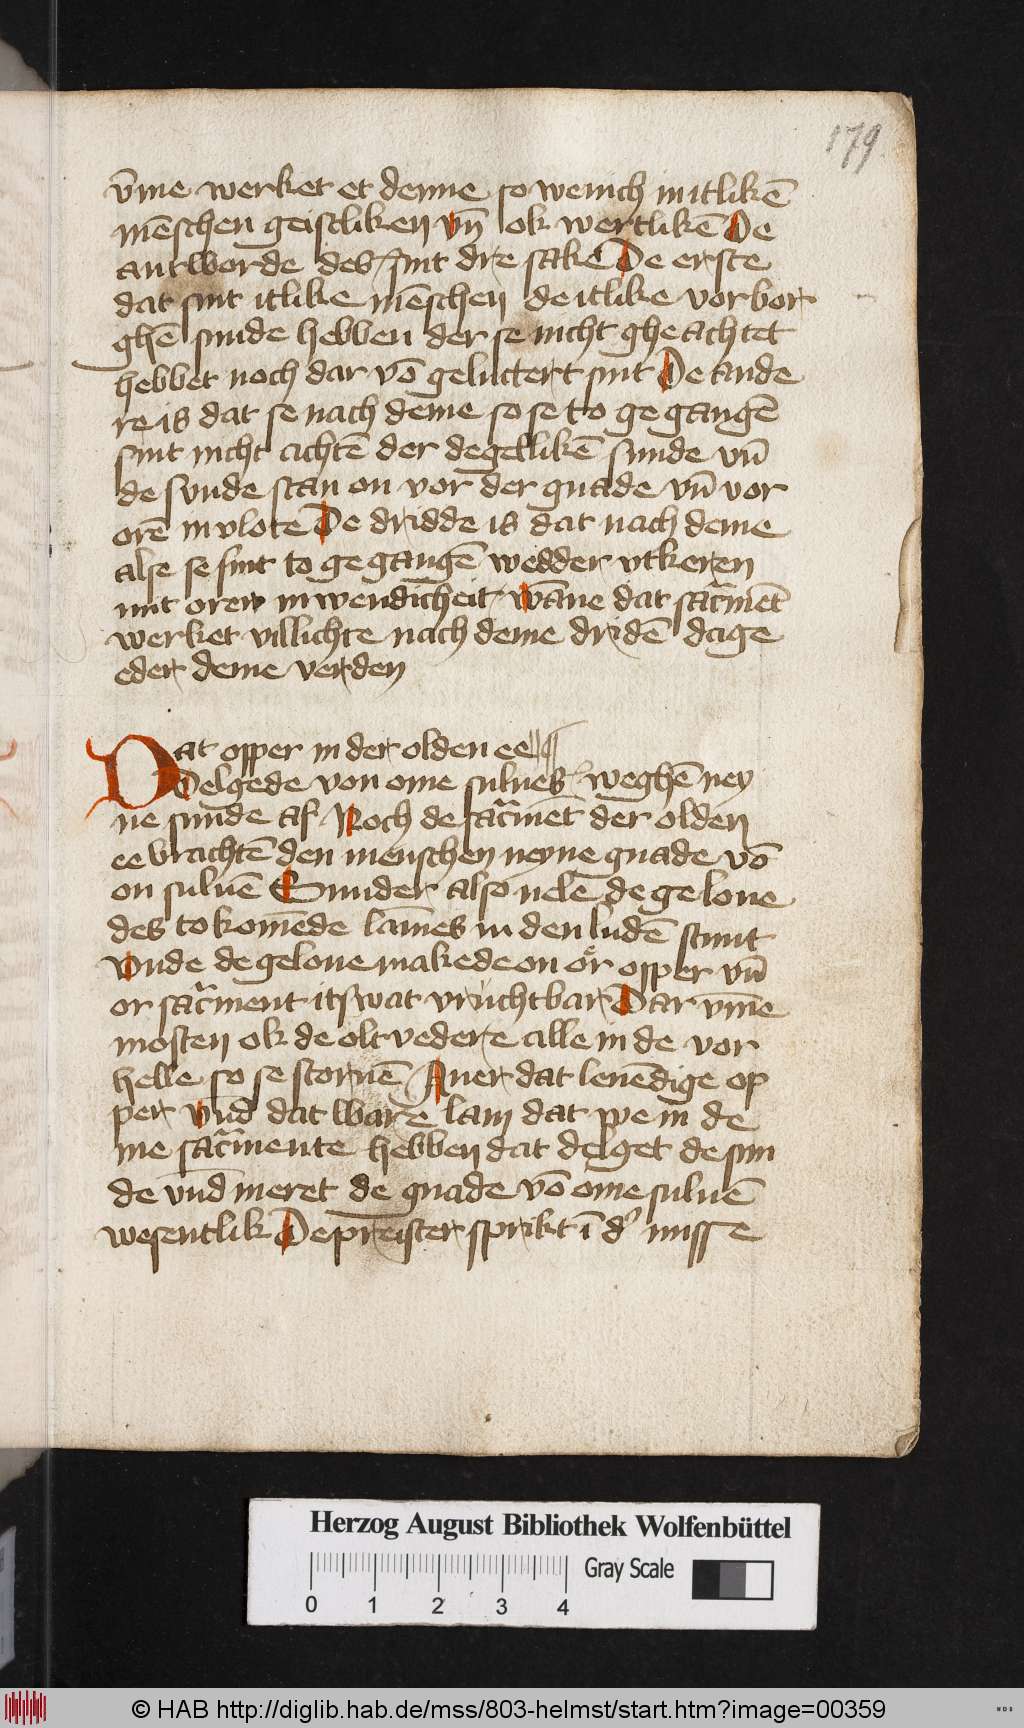 179
vm̄e werket et denne so wenich in itlikē
mēschen geistliken vn̄ ok wertlikē De
antworde des sint dre sake De erste
dat sint itlike mēschen de itlike vorbor
ghē sunde hebben der se nicht gheachtet
hebbet noch dar vō geluttert sint De ande
re is dat se nach deme so se to gegangē
sint nicht achtē der degellikē sunde vn̄
de sunde stan on vor der gnade vn̄ vor
orē invlote De dridde is dat nach deme
alse se sint to gegangē wedder vtkeren
mit orer inwendicheit wāne dat sacr̄mēt
werket villichte nach deme dridē dage
eder deme verden
Dat opper in der olden ee
Delgede von ome suluēs weghē ney
ne sunde af Noch de sacr̄mēt der olden
ee brachtē den menschen neyne gnade vō
on suluē Sunder also vele de geloue
des tokomēde lāmes in den ludē stunt
vnde de geloue makede on or opper vn̄
or sacr̄ment itswat vruchtbar Dar vm̄e
mosten ok de oltvedere alle in de vor
helle so se storuē Auer dat leuēdige op
per vn̄d dat ware lam dat we in de
me sacr̄mente hebben dat delget de sun
de vn̄d meret de gnade vō ome suluē
wesentlik De preister sprikt ī d' misse
Herzog August Bibliothek Wolfenbüttel
0 1 2 3 4 Gray Scale
© HAB http://diglib.hab.de/mss/803-helmst/start.htm?image=00359